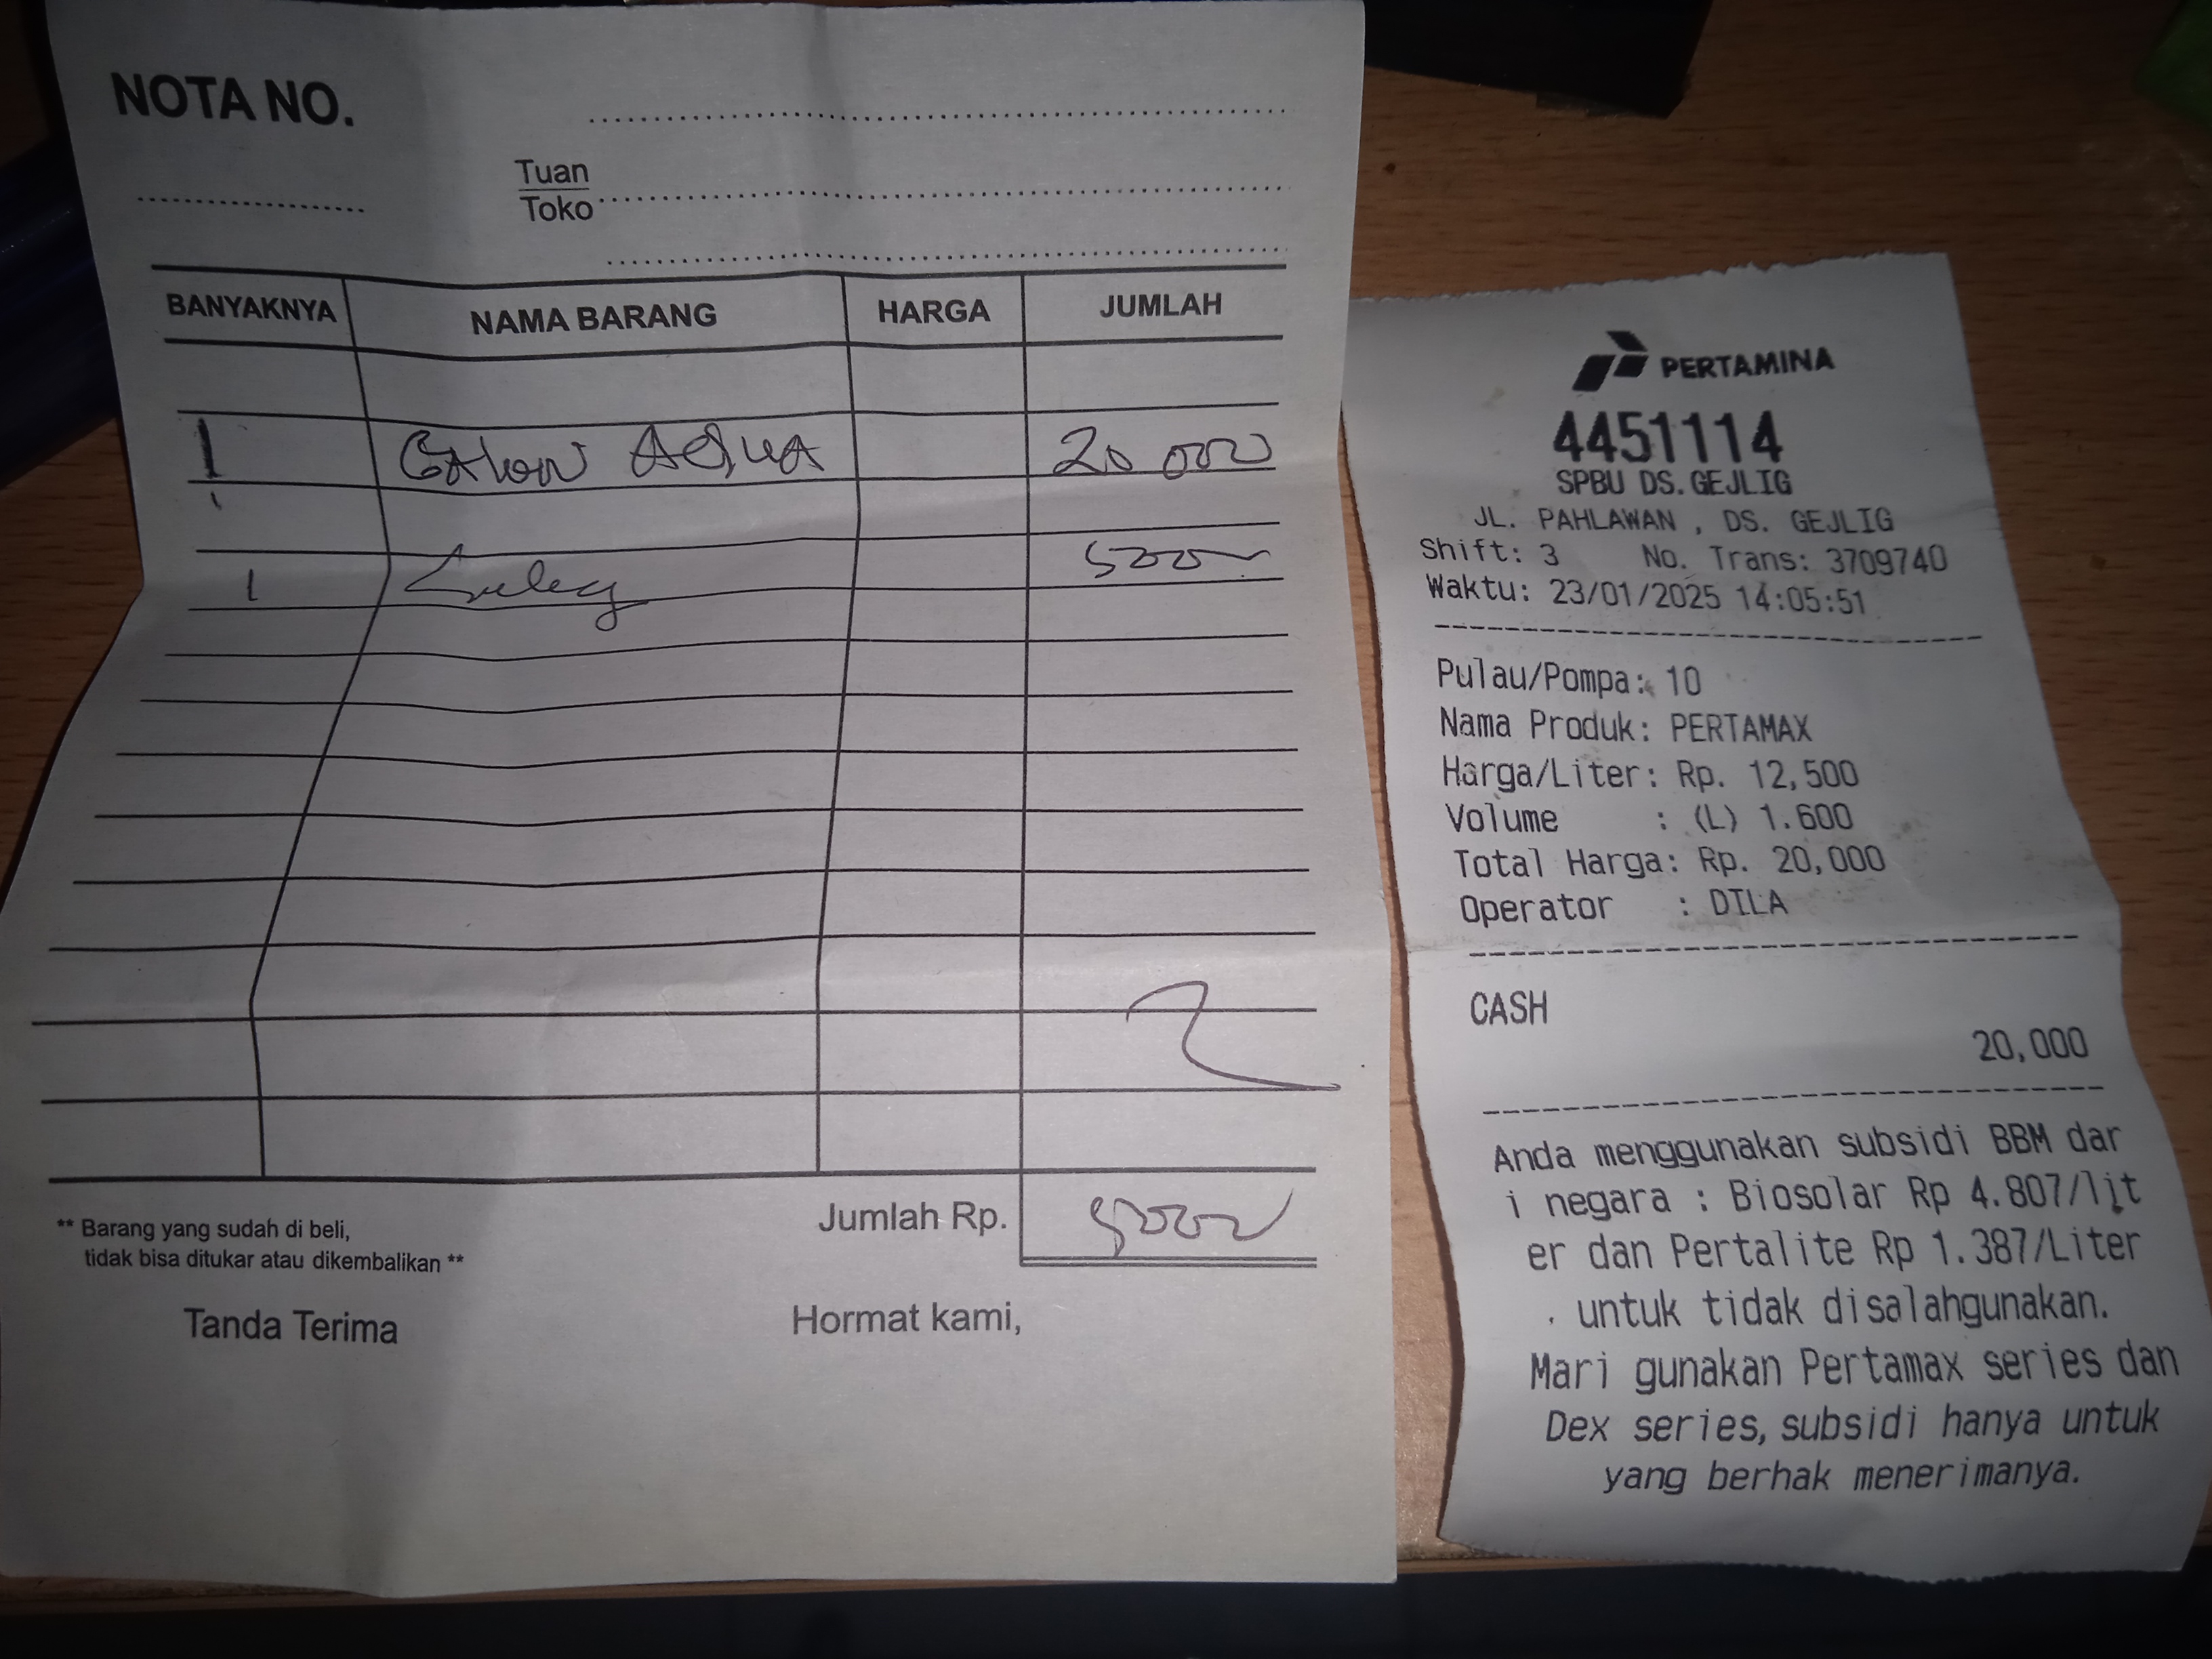 NOTA NO.
Tuan
Toko
BANYAKNYA NAMA BARANG HARGA JUMLAH
1 Galon Aqua 20 000
1 5000
Jumlah Rp. 5000
** Barang yang sudah di beli,
tidak bisa ditukar atau dikembalikan **
Tanda Terima Hormat kami,
PERTAMINA
4451114
SPBU DS. GEJLIG
JL. PAHLAWAN , DS. GEJLIG
Shift: 3 No. Trans: 3709740
Waktu: 23/01/2025 14:05:51
Pulau/Pompa: 10
Nama Produk: PERTAMAX
Harga/Liter: Rp. 12,500
Volume : (L) 1.600
Total Harga: Rp. 20,000
Operator : DILA
CASH
20,000
Anda menggunakan subsidi BBM dar
i negara : Biosolar Rp 4.807/lit
er dan Pertalite Rp 1.387/Liter
. untuk tidak disalahgunakan.
Mari gunakan Pertamax series dan
Dex series, subsidi hanya untuk
yang berhak menerimanya.